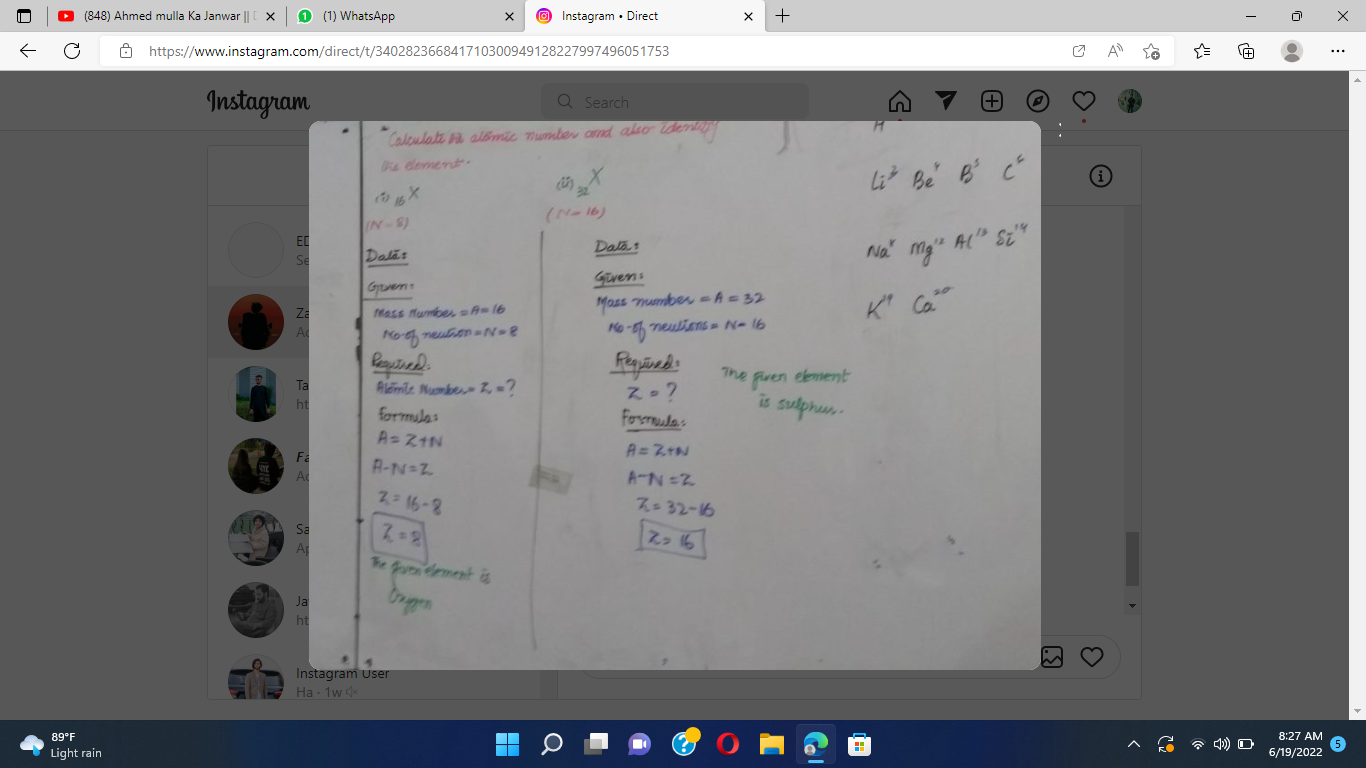 (848) Ahmed mulla Ka Janwar ||
(1) WhatsApp
Instagram • Direct
https://www.instagram.com/direct/t/340282366841710300949128227997496051753
Instagram
Search
Calculate the atomic number and also identify
the element.
(i) 16 X
(N=8)
Data:
Given:
Mass Number = A = 16
No. of neutron = N = 8
Required:
Atomic Number = Z = ?
Formula:
A = Z+N
A-N = Z
Z = 16-8
Z = 8
The given element is
Oxygen
(ii) 32 X
(N=16)
Data:
Given:
Mass number = A = 32
No. of neutrons = N = 16
Required:
Z = ?
Formula:
A = Z+N
A-N = Z
Z = 32-16
Z = 16
The given element
is sulphur.
Li3 Be4 B5 C6
Na Mg12 Al13 Si14
K19 Ca20
Za
Ta
ht
Fa
Sa
Ap
Ja
ht
Instagram User
Ha · 1w
89°F
Light rain
8:27 AM
6/19/2022
5